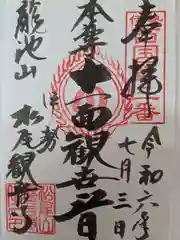 奉拝
令和六年
七月三日
本尊十一面観世音
伊勢
龍池山
松尾観音寺